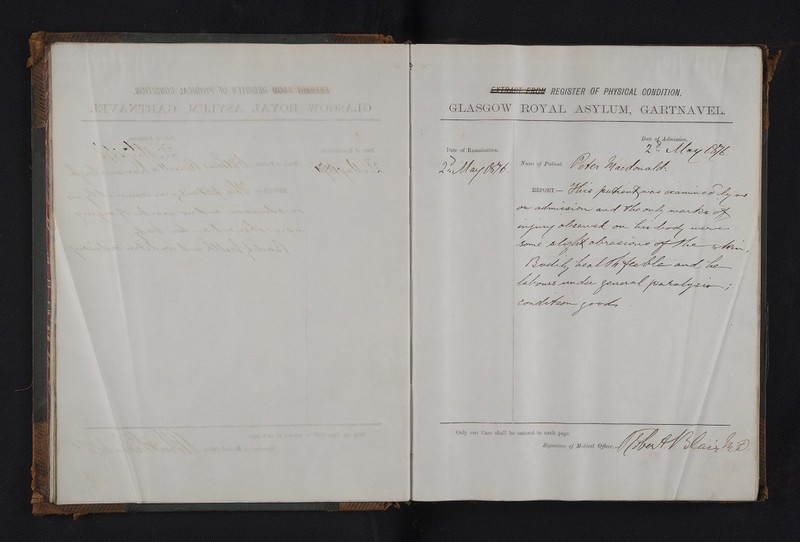 EXTRACT FROM REGISTER OF PHYSICAL CONDITION.
GLASGOW ROYAL ASYLUM, GARTNAVEL.
Date of Admission,
2d May 1876
Date of Examination.
2d May 1876
Name of Patient Peter Macdonald
REPORT— This patient was examined by me
on admission and the only marks of
injury observed on his body were
some slight abrasions of the skin.
Bodily health feeble and he
labours under general paralysis;
condition good.
Only one Case shall be entered in each page.
Signature of Medical Officer, Robert Blair M.D.